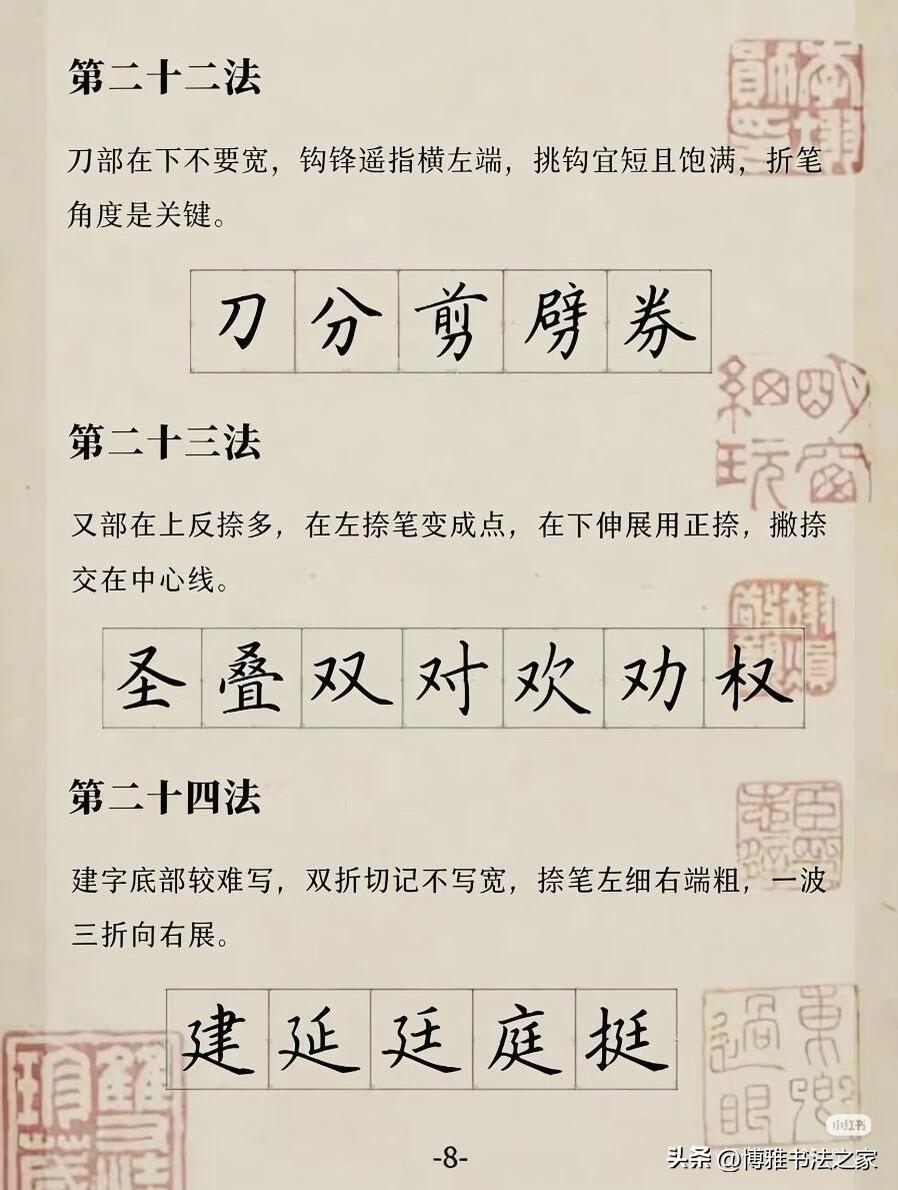 第二十二法
刀部在下不要宽，钩锋遥指横左端，挑钩宜短且饱满，折笔
角度是关键。
刀分剪劈券
第二十三法
又部在上反捺多，在左捺笔变成点，在下伸展用正捺，撇捺
交在中心线。
圣叠双对欢劝权
第二十四法
建字底部较难写，双折切记不写宽，捺笔左细右端粗，一波
三折向右展。
建延廷庭挺
-8-
小红书
头条 @博雅书法之家